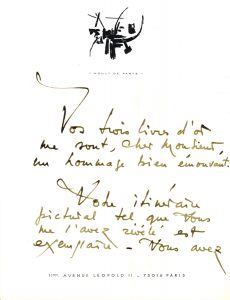 Vos trois livres d'or
me sont, cher Monsieur,
un hommage bien émouvant.
Votre itinéraire
pictural tel que vous
me l'avez révélé est
exemplaire - Vous avez
AVENUE LÉOPOLD II - 75016 PARIS